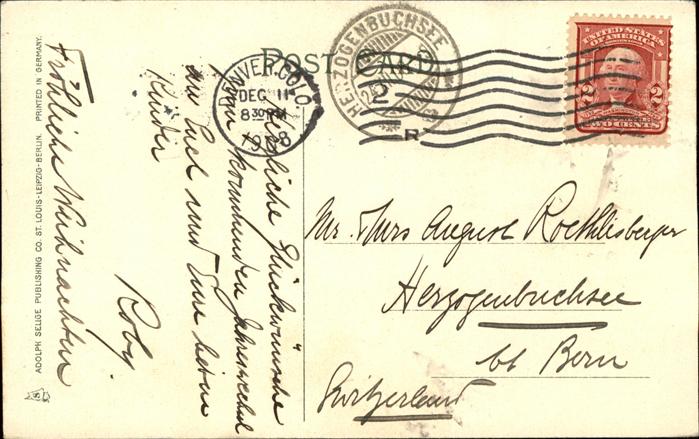 POST CARD
DENVER, COLO.
DEC 11
8 30 PM
1908
HERZOGENBUCHSEE
UNITED STATES OF AMERICA
2 2
TWO CENTS
R
Herzliche Glückwünsche
zum kommenden Jahreswechsel
an Euch und Eure lieben
Kinder
Roby.
Fröhliche Weihnachten
Mr. & Mrs August Roethlisberger
Herzogenbuchsee
bt Bern
Switzerland
ADOLPH SELIGE PUBLISHING CO. ST. LOUIS-LEIPZIG-BERLIN. PRINTED IN GERMANY.
S